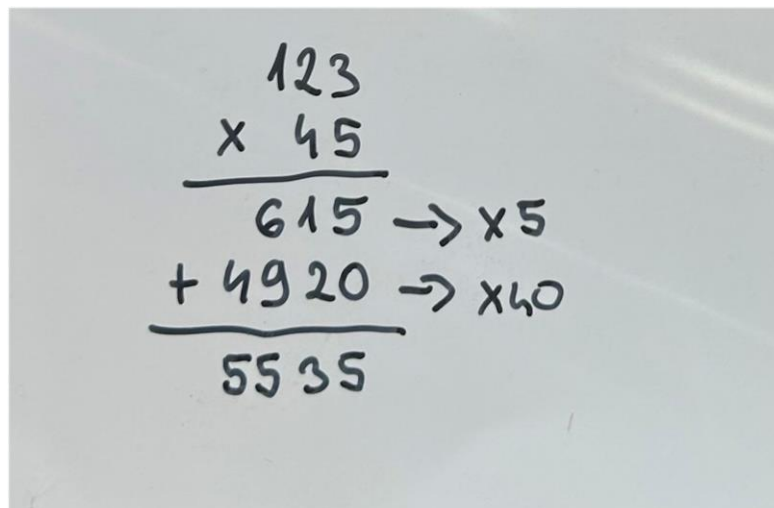 123
x 45
615 → x5
+ 4920 → x40
5535